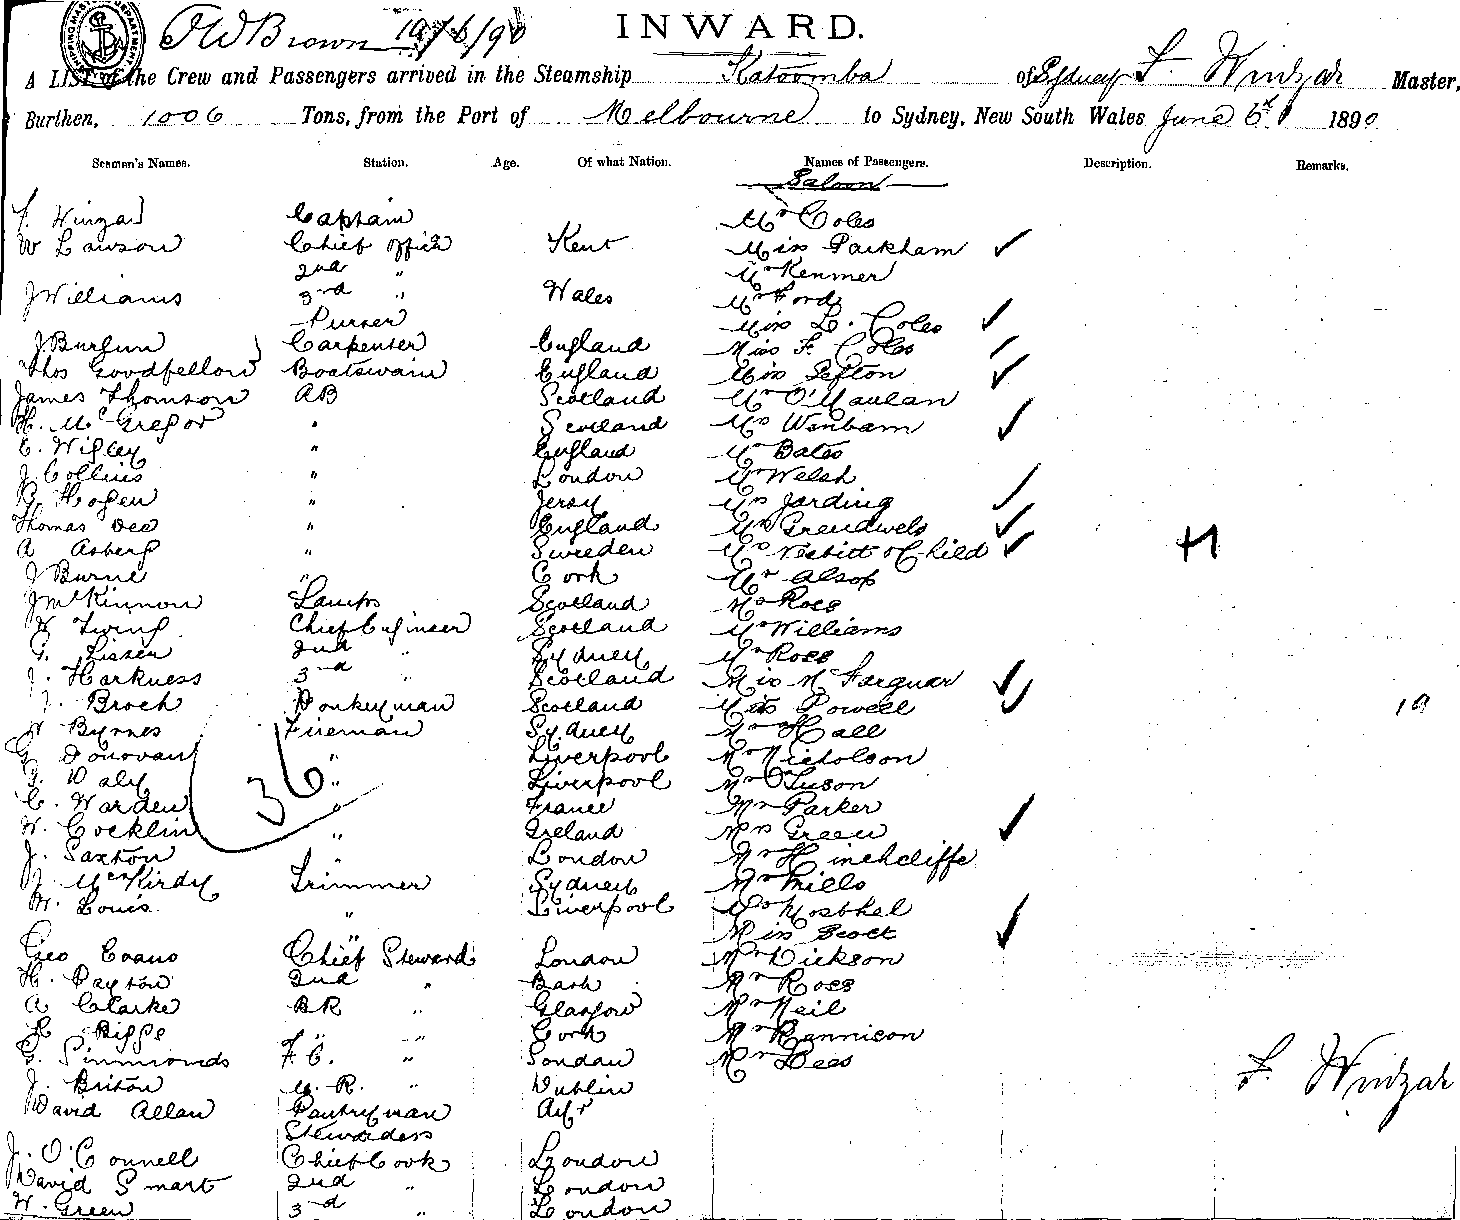 SHIPPING MASTER'S DEPARTMENT
JW Brown 19/6/90
INWARD.
A LIST of the Crew and Passengers arrived in the Steamship Katoomba of Sydney F. Windzar Master,
Burthen, 1006 Tons, from the Port of Melbourne to Sydney, New South Wales June 6th 1890
Seamen's Names. Station. Age. Of what Nation. Names of Passengers. Description. Remarks.
Saloon
F. Captain Mr Coles
W Lawson Chief Officer Kent Miss Parkham ✓
2nd " Mr Kenmer
J Williams 3rd " Wales Mr Ford
Purser Miss L. Coles ✓
J. Carpenter England Miss F. Coles
Thos Goodfellow Boatswain England Miss Sefton ✓
James Thomson AB Scotland Mr
H. McGregor " Scotland Mrs Wenbam ✓
E. Wigley " England Mr Bates
J Collins " London Mr Welsh
G. Hogen " Jersy Mrs Jarding
Thomas Dee " England Mrs ✓
A Asberg " Sweden Mrs Nesbitt & Child ✓ H
J Burne " Cork Mr Alsop
J McKinnon Lamps Scotland Mr Ross
Chief Enginser Scotland Mr Williams
G. 2nd " Sydney Mr Ross
J. Harkness 3rd " Scotland Miss M Farquar ✓
J. Broch Donkeyman Scotland Powell ✓ 19
W Byrnes Fireman Sydney Mr Hall
G. Donovan " Liverpool Mr Nicholson
G. Daly " Liverpool Mr
C. Warden 36 " France Mr Parker
W. Cocklin " Ireland Mrs Green ✓
J. Saxton " London Mr Hinchcliffe
J. McKirdy Trimmer Sydney Mr Mills
W. Louis " Liverpool
" Miss Scott ✓
Geo Evans Chief Steward London Mr Dickson
H. Payton 2nd " Bath Mr Ross
A Clarke BR " Glasgow Mr Neil
H Biggs " " Cork Mr Rennison
G. Simmonds F.C. " London Mr Lees
J. Briton " Dublin F. Windzar
David Allan Pantryman Ayr
Stewardess
J. O'Connell Chief Cook London
David Smart 2nd " London
W. Green 3rd " London